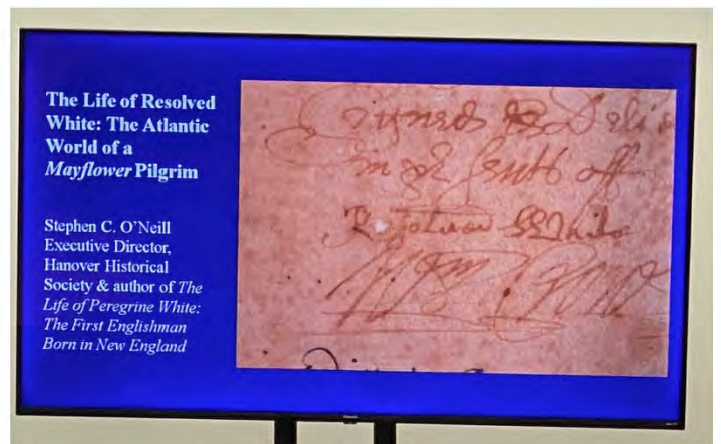 The Life of Resolved
White: The Atlantic
World of a
Mayflower Pilgrim
Stephen C. O'Neill
Executive Director,
Hanover Historical
Society & author of The
Life of Peregrine White:
The First Englishman
Born in New England
Signed & Deli
in ye
off
Resolved White